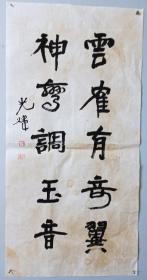 雲雀有奇翼
神鸞調玉音
光煒